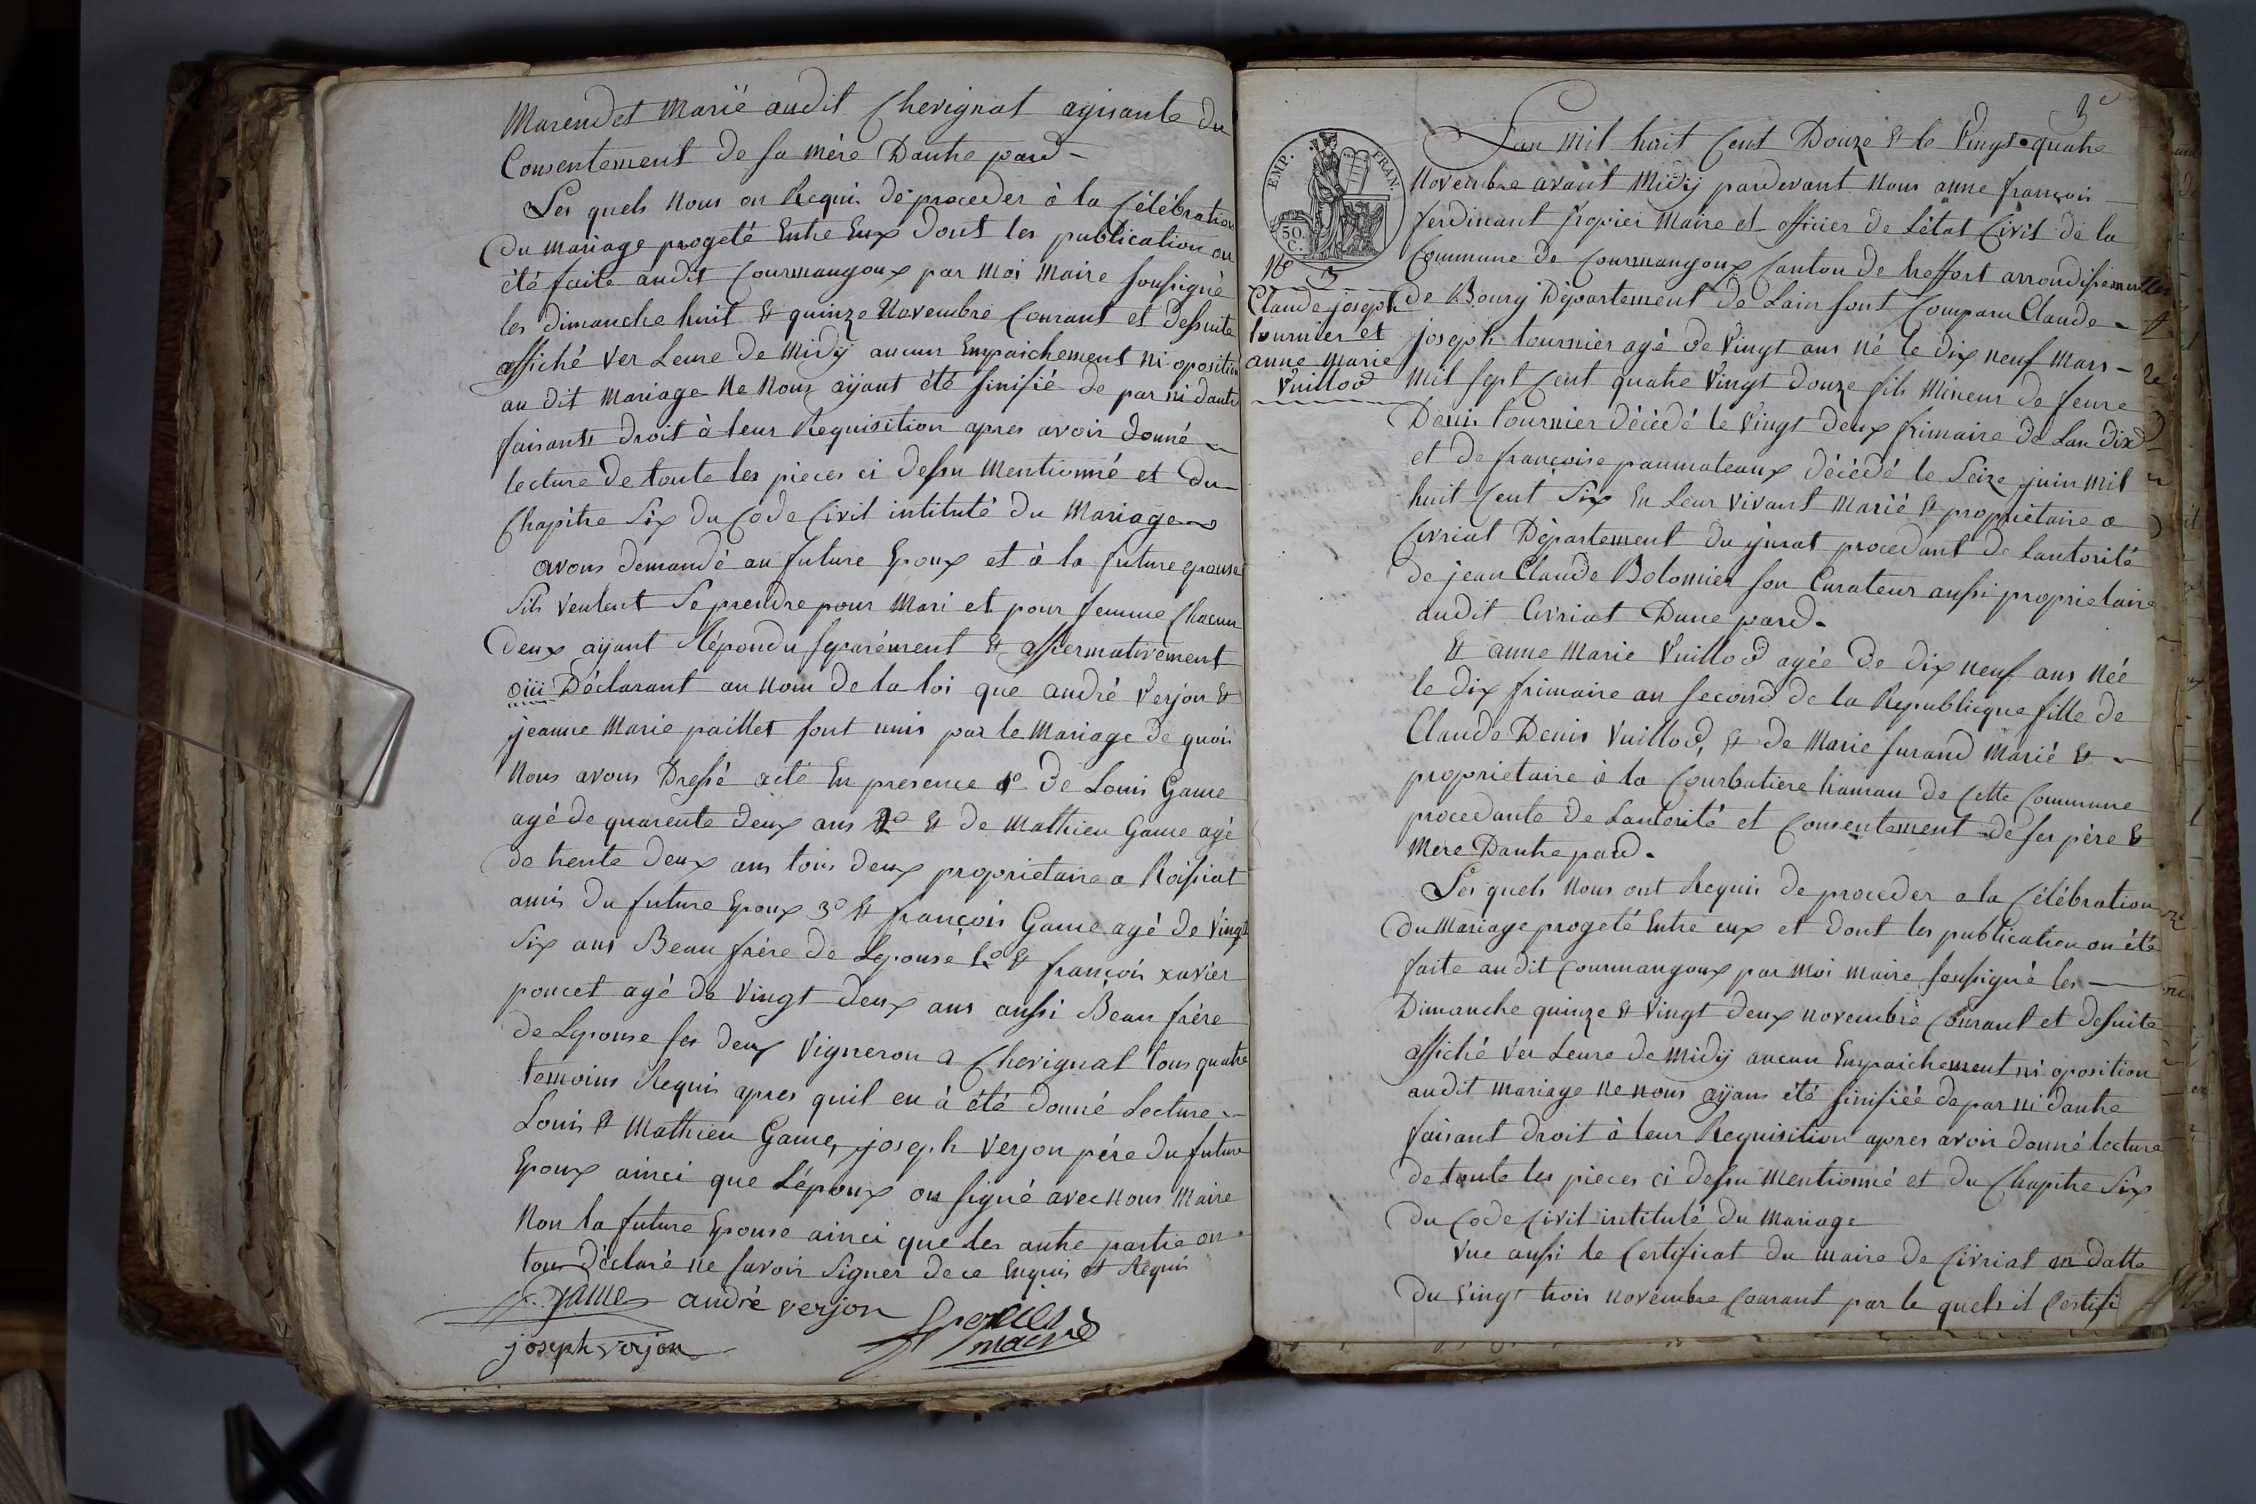 Marendet Marié audit Chevignat agisante du
Consentement de sa mère Dautre pard -
Les quels nous on Requi. de proceder à la Célébration
du mariage progeté Entre Eux dont les publication on
été faite audit Courmangoux par moi maire soussigné
les dimanche huit & quinze Novembre Courant et dessuite
affiché ver Leure de Midÿ aucun Empaichement ni oposition
au dit Mariage Ne Nous aÿant été sinifié de par ni dautre
faisants droit à leur Requisition apres avoir donné
lecture de toute les pieces ci dessu mentionné et du
Chapitre Six du Code Civil intitulé du Mariage
avons demandé au future Epoux et à la future epouse
Sils veulent Se prendre pour Mari et pour femme Chacun
deux aÿant Répondu séparément & affermativement
oiii Déclarant au nom de la loi que andré Verjon &
jeanne Marie paillet sont unis par le Mariage de quoi
Nous avons Dressé acte En presence 1º de Louis Game
agé de quarente deux ans 2º & de Mathieu Game agé
de trente deux ans tois deux proprietaire a Roissiat
amis du future Epoux 3º & françois Game agé de Vingt
Six ans Beau frère de Lepouse & françois xavier
poncet agé de Vingt deux ans aussi Beau frère
de Lepouse ses deux Vigneron a Chevignat tous quatre
temoins Requis apres quil en à été donné Lecture
Louis & Mathieu Game, joseph Verjon père du future
Epoux ainci que Lépoux on signé avec nous Maire
Non la future Epouse ainci que les autre partie on
tous déclaré ne savoir Signer de ce Enquis et Requis
Game andré verjon
joseph verjon maire
3e
EMP. FRAN.
50. C.
Nº 3
Claude joseph
tournier et
anne marie
Vuillod
Lan mil huit Cent Douze & le Vingt quatre
Novembre avant Midÿ pardevant Nous anne françois
ferdinant Maire et officier de Létat Civil de la
Commune de Courmangoux Canton de treffort arrondissement
de Bourg Département de Lain sont Comparu Claude
joseph tournier agé de Vingt ans né le dix neuf Mars -
mil sept Cent quatre Vingt douze fils Mineur de feure
Denis tournier décédé le Vingt deux frimaire de Lan dix
et de françoise paumateaux décédé le Seize juin mil
huit Cent Six En Leur vivant marié & propriétaire a
Civriat Département du jurat procedant de Lautorité
de jean Claude Bolomier son Curateur aussi proprietaire
audit Civriat Dune pard.
& anne Marie Vuillod agée de dix neuf ans Née
le dix frimaire an second de la Republique fille de
Claude Denis Vuillod, & de Marie furand Marié &
proprietaire à la Courbatiere hamau de Cette Commune
procedante de Lautorité et Consentement de ses père &
Mere Dautre pard.
Les quels Nous ont Requis de proceder a la Célébration
du Mariage progeté Entre eux et dont les publication on été
faite au dit Courmangoux par moi maire soussigné les
Dimanche quinze & Vingt deux novembre Courant et desuite
affiché ver Leure de Midÿ aucun Empaichement ni oposition
audit mariage ne nous aÿans été sinifiée de par ni dautre
faisant droit à leur Requisition apres avoir donné lecture
de toute les pieces ci dessu mentionné et du Chapitre Six
du Code Civil intitulé du Mariage
Vue aussi le Certificat du maire de Civriat en datte
du Vingt trois novembre Courant par le quels il Certifi